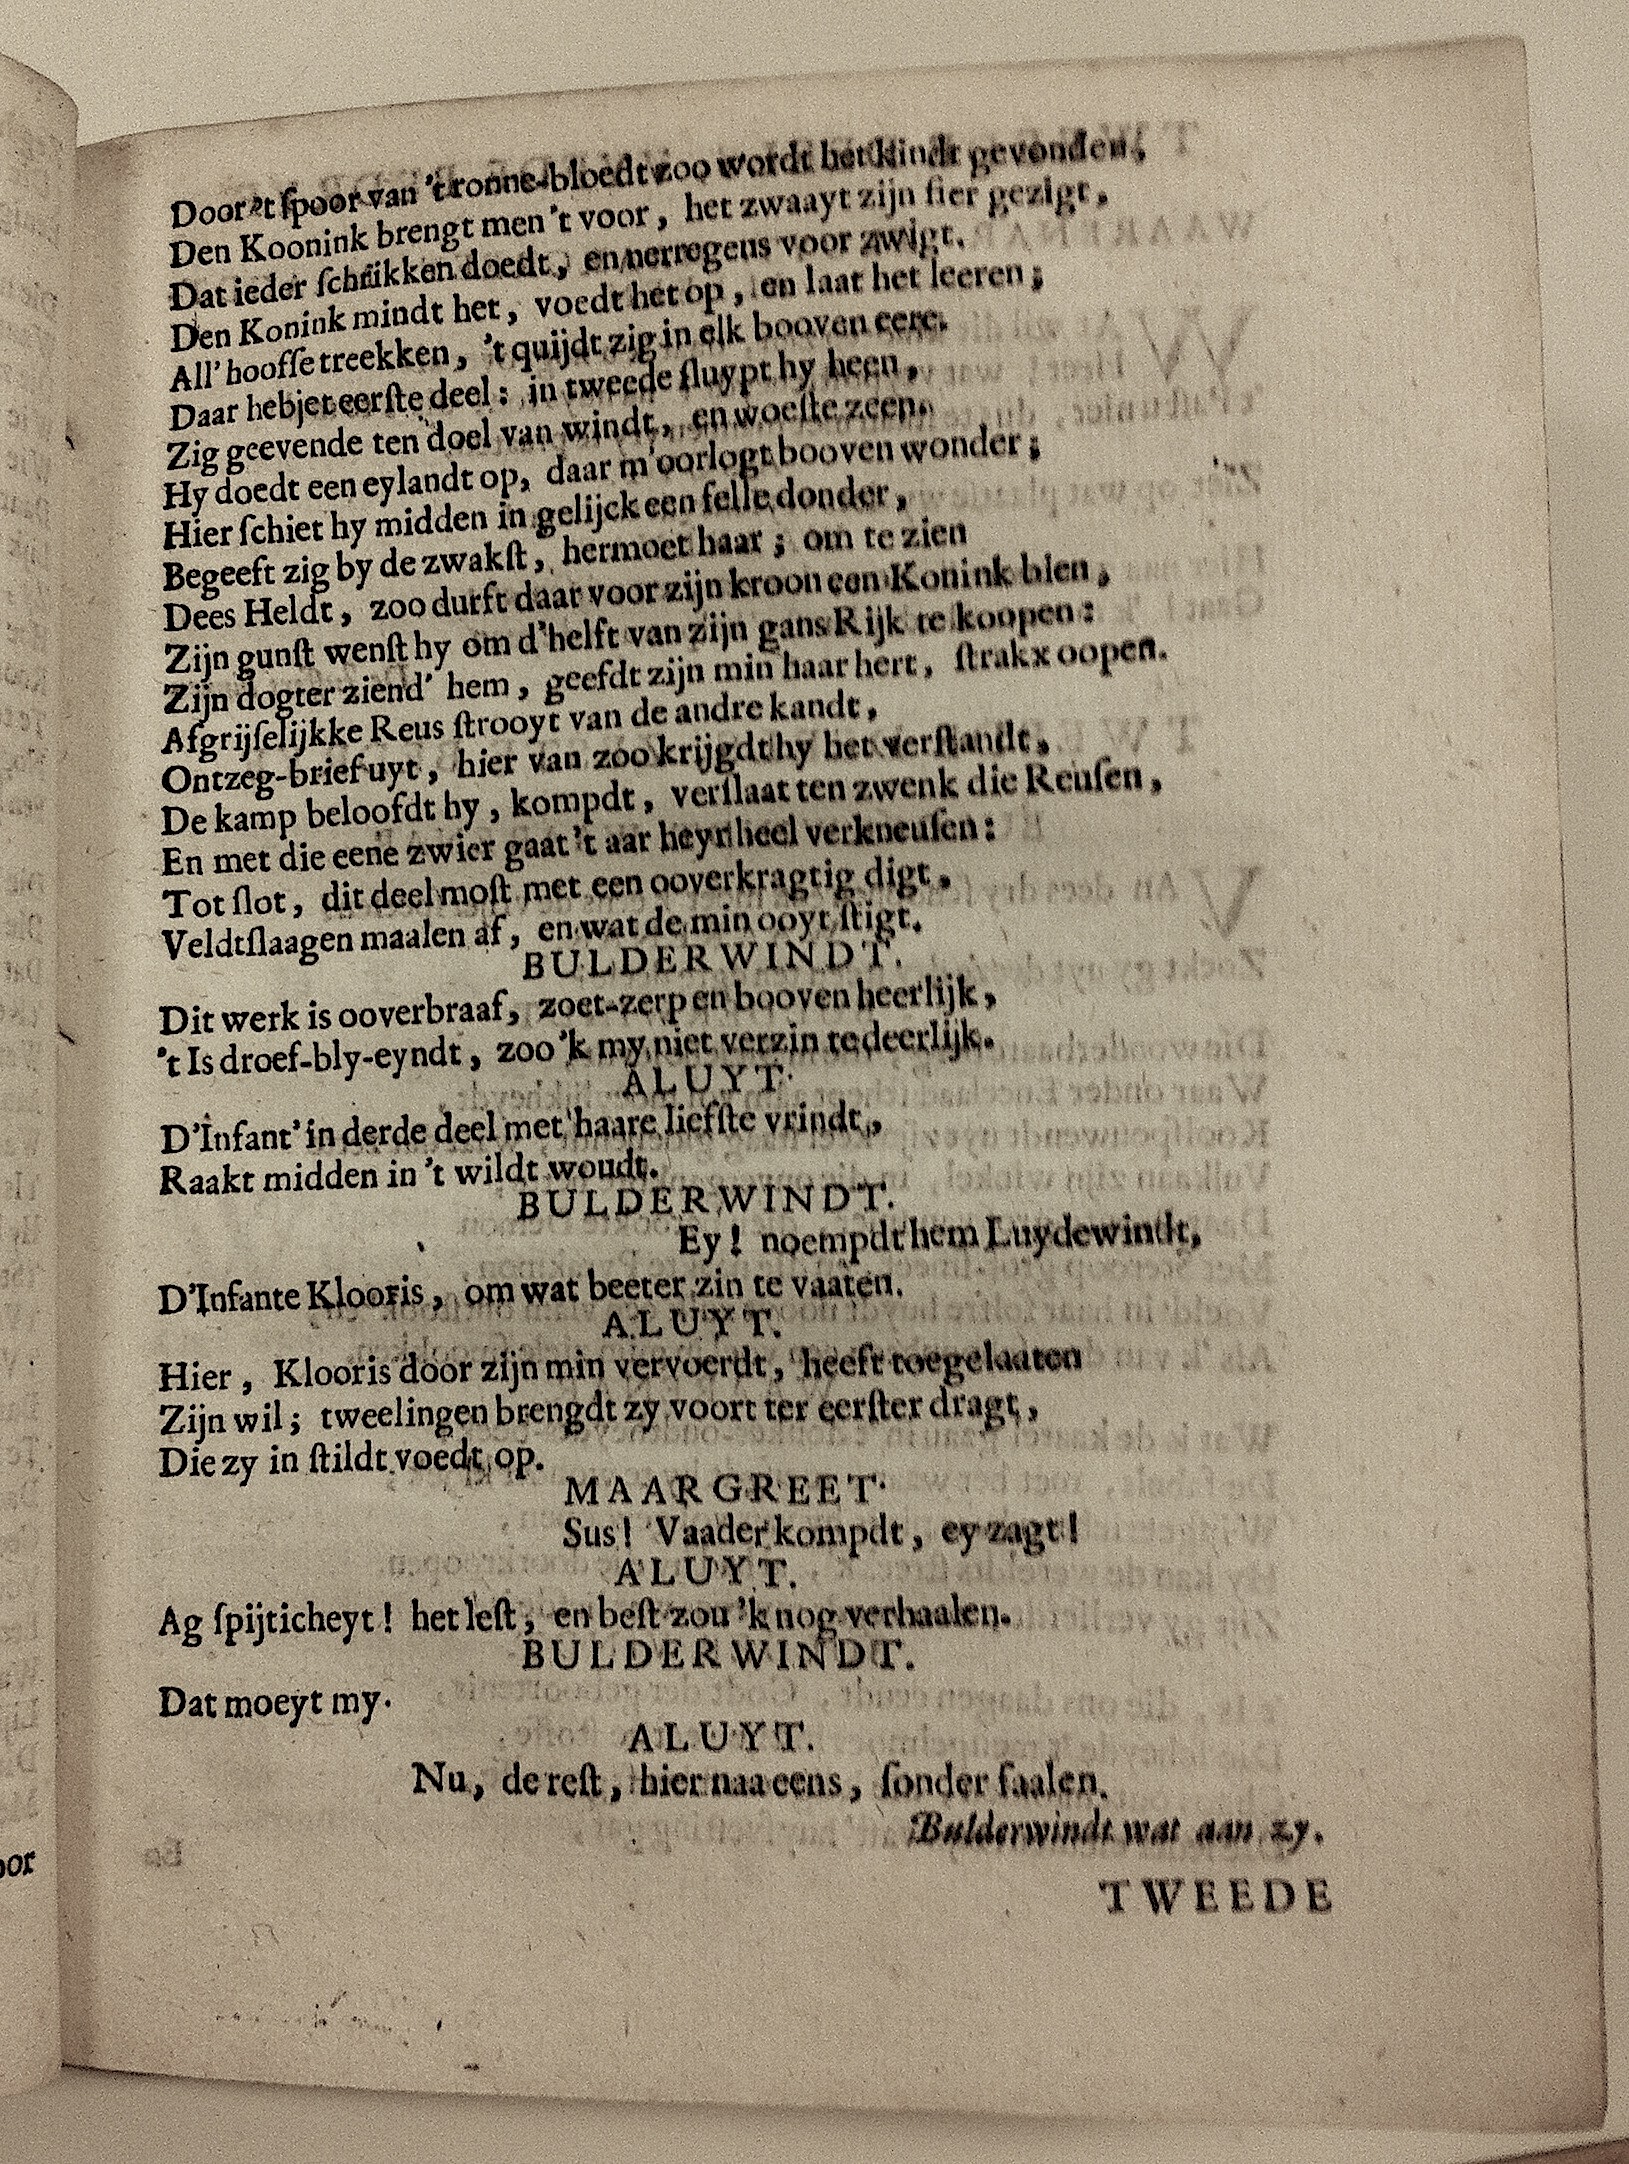 Door 't ſpoor van 't ronne-bloedt zoo wordt het kindt gevonden,
Den Koonink brengt men 't voor, het zwaayt zijn fier gezigt,
Dat ieder ſchrikken doedt, en nerregens voor zwigt.
Den Konink mindt het, voedt het op, en laat het leeren;
All' hoofſe treekken, 't quijdt zig in elk booven eere.
Daar hebjet eerſte deel: in tweede ſluypt hy heen,
Zig geevende ten doel van windt, en woeſte zeen.
Hy doedt een eylandt op, daar m'oorlogt booven wonder;
Hier ſchiet hy midden in gelijck een felle donder,
Begeeft zig by de zwakſt, hermoet haar; om te zien
Dees Heldt, zoo durft daar voor zijn kroon een Konink bien,
Zijn gunſt wenſt hy om d'helft van zijn gans Rijk te koopen:
Zijn dogter ziend' hem, geefdt zijn min haar hert, ſtrakx oopen.
Afgrijſelijkke Reus ſtrooyt van de andre kandt,
Ontzeg-brief uyt, hier van zoo krijgdt hy het verſtandt,
De kamp beloofdt hy, kompdt, verſlaat ten zwenk die Reuſen,
En met die eene zwier gaat 't aar heyr heel verkneuſen:
Tot ſlot, dit deel moſt met een ooverkragtig digt,
Veldtſlaagen maalen af, en wat de min ooyt ſtigt.
BULDERWINDT.
Dit werk is ooverbraaf, zoet-zerp en booven heerlijk,
't Is droef-bly-eyndt, zoo 'k my niet verzin te deerlijk.
ALUYT.
D'Infant' in derde deel met haare liefſte vrindt,
Raakt midden in 't wildt woudt.
BULDERWINDT.
Ey! noempdt hem Luydewindt,
D'Infante Klooris, om wat beeter zin te vaaten.
ALUYT.
Hier, Klooris door zijn min vervoerdt, heeft toegelaaten
Zijn wil; tweelingen brengdt zy voort ter eerſter dragt,
Die zy in ſtildt voedt op.
MAARGREET.
Sus! Vaader kompdt, ey zagt!
ALUYT.
Ag ſpijticheyt! het leſt, en beſt zou 'k nog verhaalen.
BULDERWINDT.
Dat moeyt my.
ALUYT.
Nu, de reſt, hier naa eens, ſonder faalen.
Bulderwindt wat aan zy.
TWEEDE
oor